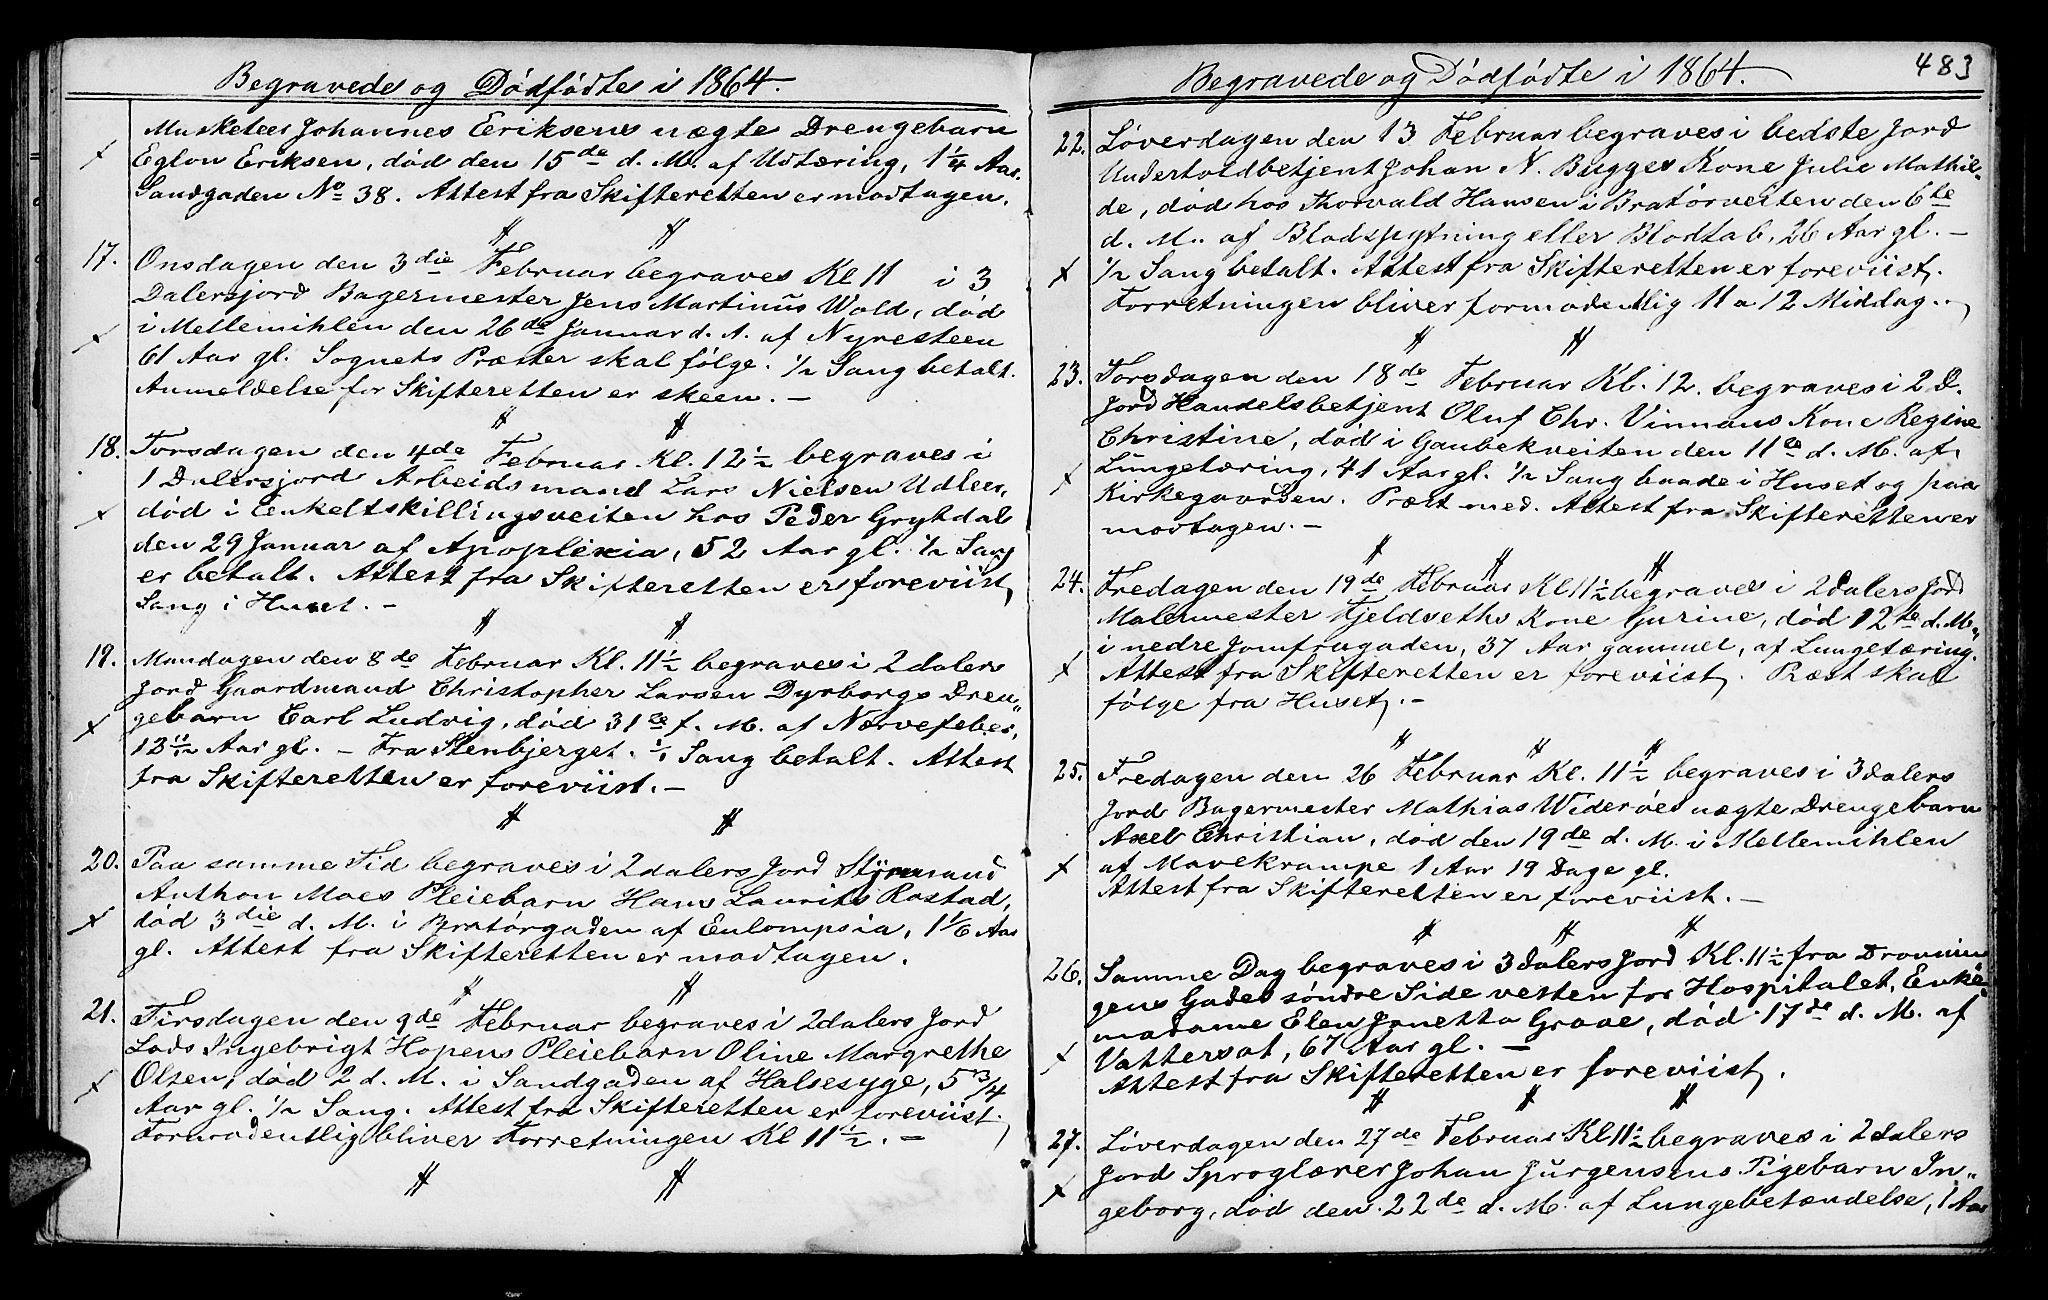 Begravede og Dödfödte i 1864.
Musketeer Johannes Eriksens ægte Drengebarn
Eglon Eriksen, död den 15de d. M. af Udtæring, 1 1/4 Aar.
Sandgaden No 38. Attest fra Skifteretten er modtagen.
17. Onsdagen den 3die Februar begraves Kl 11 i 3
Dalersjord Bagermester Jens Martinus Wold, död
i Mellemihlen den 26de Januar d. A. af Nyresteen
61 Aar gl. Sognets Præster skal fölge. 1/2 Sang betalt.
Anmeldelse for Skifteretten er skeen. —
18. Torsdagen den 4de Februar Kl. 12 1/2 begraves i
1 Dalersjord Arbeidsmand Lars Nielsen Udleer,
död i Enkeltskillingsveiten hos Peder Grytdal
den 29 Januar af Apoplexia, 52 Aar gl. 1/2 Sang
er betalt. Attest fra Skifteretten er foreviist,
Sang i Huset. —
19. Mandagen den 8de Februar Kl. 11 1/2 begraves i 2 dalers
Jord Gaardmand Christopher Larsen Dyrborgs Dren„
gebarn Carl Ludvig, död 31te f. M. af Nervefeber,
13 1/2 Aar gl. — Fra Stenbjerget. 1/1 Sang betalt. Attest
fra Skifteretten er foreviist. —
20. Paa samme Tid begraves i 2dalers Jord Styrmand
Anthon Moes Pleiebarn Hans Laurits Rostad,
död 3die d. M. i Bratörgaden af Enlompsia, 1 1/6 Aar
gl. Attest fra Skifteretten er modtagen.
21. Tirsdagen den 9de Februar begraves i 2dalers Jord
Lods Ingebrigt Hopens Pleiebarn Oline Margrethe
Olsen, död 2 d. M. i Sandgaden af Halsesyge, 5 3/4
Aar gl. 1/2 Sang. Attest fra Skifteretten er foreviist.
Formodentlig bliver Forretningen Kl 11 1/2. —
Begravede og Dödfödte i 1864.
483
22. Löverdagen den 13 Februar begraves i bedste Jord
Undertoldbetjent Johan N. Bugges Kone Julie Mathil-
de, död hos Thorvald Hansen i Bratörveiten den 6te
d. M. af Blodspytning eller Blodtab, 26 Aar gl. —
1/2 Sang betalt. Attest fra Skifteretten er foreviist.
Forretningen bliver formodentlig 11 a 12 Middag.
23. Torsdagen den 18de Februar Kl. 12. begraves i 2 D.
Jord Handelsbetjent Oluf Chr. Vinnans Kone Regine
Christine, död i Gaubekveiten den 11te d. M. af
Lungetæring, 41 Aar gl. 1/2 Sang baade i Huset og paa
Kirkegaarden. Præst med. Attest fra Skifteretten er
modtagen. —
24. Fredagen den 19de Februar Kl 11 1/2 begraves i 2dalers Jord
Malermester Fjeldseths Kone Gurine, död 12te d. M.
i nedre Jomfrugaden, 37 Aar gammel, af Lungetæring.
Attest fra Skifteretten er foreviist. Præst skal
fölge fra Huset. —
25. Fredagen den 26 Februar Kl. 11 1/2 begraves i 3dalers
Jord Bagermester Mathias Wideröes ægte Drengebarn
Axel Christian, död den 19de d. M. i Mellemihlen
af Mavekrampe 1 Aar 19 Dage gl.
Attest fra Skifteretten er foreviist. —
26. Samme Dag begraves i 3dalers Jord Kl. 11 1/2 fra Dronnin
gens Gades söndre Side vesten for Hospitalet, Enke-
madame Elen Janetta Graae, död 17de d. M. af
Vattersot, 67 Aar gl. —
Attest fra Skifteretten er foreviist.
27. Löverdagen den 27de Februar Kl 11 1/2 begraves i 2dalers
Jord Sproglærer Johan Jürgensens Pigebarn In„
geborg, död den 22de d. M. af Lungebetændelse, 1 Aar